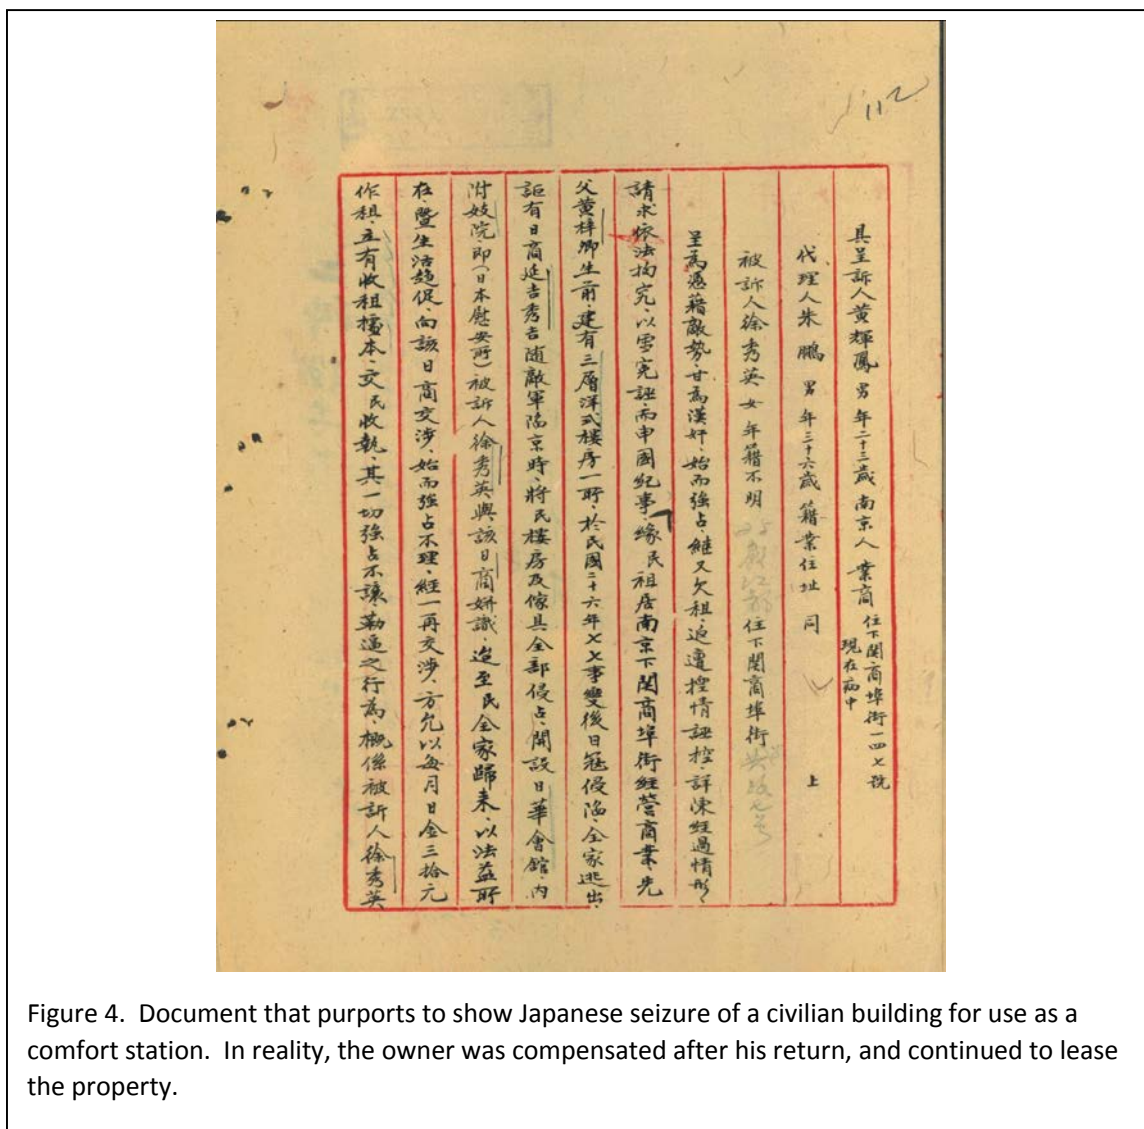 112
具呈訴人黃輝鳳 男 年二十三歲 南京人 業商 住下関商埠街一四七號 現在病中
代理人朱鵬 男 年三十六歲 籍業住址 同 上
被訴人徐秀英 女 年籍不明 住下関商埠街
呈為憑藉敵勢、甘為漢奸、始而強占、繼又欠租、迫遭捏情誣控、詳陳經過情形、
請求依法拘究、以雪冤誣、而申國紀事、緣民祖居南京下関商埠街經營商業、先
父黃梓卿生前、建有三層洋式樓房一所、於民國二十六年七七事變後日寇侵陷、全家逃出、
詎有日商延吉秀吉隨敵軍陷京時、將民樓房及傢具全部侵占、開設日華會館、內
附妓院、即(日本慰安所)被訴人徐秀英與該日商姘識、迨至民全家歸來、以法益所
在、暨生活趨促、向該日商交涉、始而強占不理、經一再交涉、方允以每月日金三拾元
作租、立有收租摺本、交民收執、其一切強占不讓、勒逼之行為、概係被訴人徐秀英
Figure 4. Document that purports to show Japanese seizure of a civilian building for use as a
comfort station. In reality, the owner was compensated after his return, and continued to lease
the property.